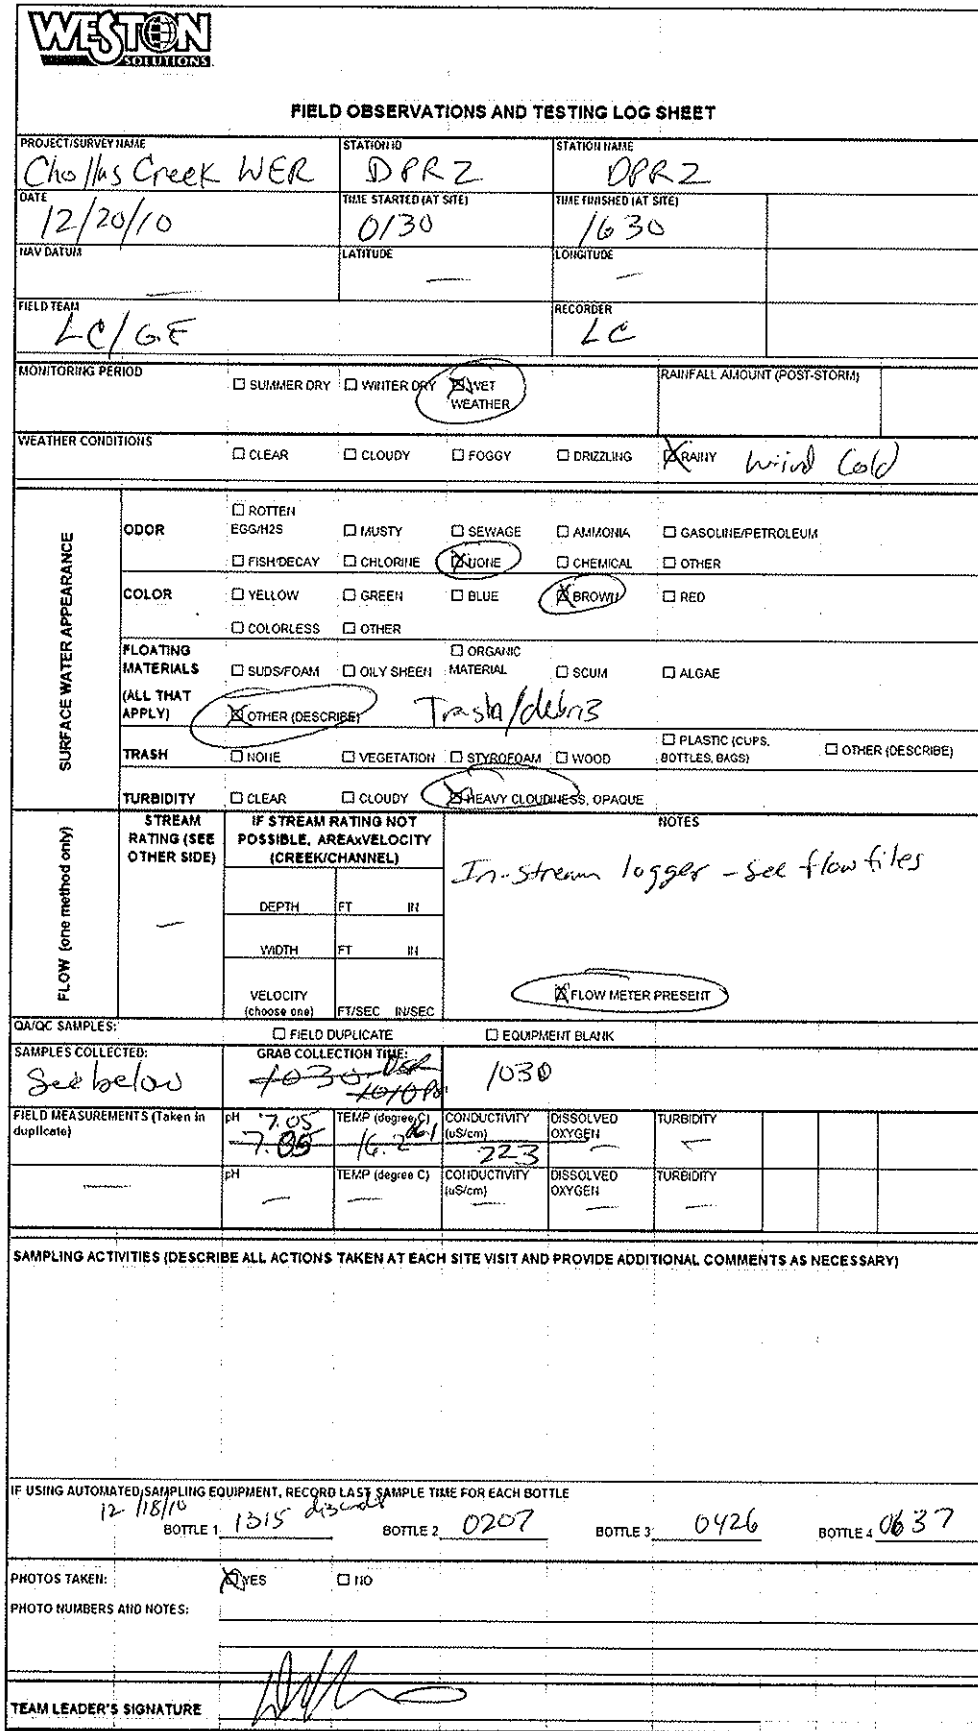 WESTON
SOLUTIONS
FIELD OBSERVATIONS AND TESTING LOG SHEET
PROJECT/SURVEY NAME STATION ID STATION NAME
Chollas Creek WER DPR2 DPR2
DATE TIME STARTED (AT SITE) TIME FINISHED (AT SITE)
12/20/10 0130 1630
NAV DATUM LATITUDE LONGITUDE
— — —
FIELD TEAM RECORDER
LC/GE LC
MONITORING PERIOD ☐ SUMMER DRY ☐ WINTER DRY ☒ WET WEATHER RAINFALL AMOUNT (POST-STORM)
WEATHER CONDITIONS ☐ CLEAR ☐ CLOUDY ☐ FOGGY ☐ DRIZZLING ☒ RAINY Wind Cold
SURFACE WATER APPEARANCE
ODOR ☐ ROTTEN EGG/H2S ☐ MUSTY ☐ SEWAGE ☐ AMMONIA ☐ GASOLINE/PETROLEUM
☐ FISH/DECAY ☐ CHLORINE ☒ NONE ☐ CHEMICAL ☐ OTHER
COLOR ☐ YELLOW ☐ GREEN ☐ BLUE ☒ BROWN ☐ RED
☐ COLORLESS ☐ OTHER
FLOATING MATERIALS (ALL THAT APPLY) ☐ SUDS/FOAM ☐ OILY SHEEN ☐ ORGANIC MATERIAL ☐ SCUM ☐ ALGAE
☒ OTHER (DESCRIBE) Trash/debris
TRASH ☐ NONE ☐ VEGETATION ☐ STYROFOAM ☐ WOOD ☐ PLASTIC (CUPS, BOTTLES, BAGS) ☐ OTHER (DESCRIBE)
TURBIDITY ☐ CLEAR ☐ CLOUDY ☒ HEAVY CLOUDINESS, OPAQUE
FLOW (one method only)
STREAM RATING (SEE OTHER SIDE) IF STREAM RATING NOT POSSIBLE, AREAxVELOCITY (CREEK/CHANNEL) NOTES
In-stream logger - see flow files
DEPTH FT IN
—
WIDTH FT IN
VELOCITY (choose one) FT/SEC IN/SEC ☒ FLOW METER PRESENT
QA/QC SAMPLES: ☐ FIELD DUPLICATE ☐ EQUIPMENT BLANK
SAMPLES COLLECTED: GRAB COLLECTION TIME:
See below 1030 1010 1030
FIELD MEASUREMENTS (Taken in duplicate) pH TEMP (degree C) CONDUCTIVITY (uS/cm) DISSOLVED OXYGEN TURBIDITY
7.05 16.2 223 — —
pH TEMP (degree C) CONDUCTIVITY (uS/cm) DISSOLVED OXYGEN TURBIDITY
— — — — — —
SAMPLING ACTIVITIES (DESCRIBE ALL ACTIONS TAKEN AT EACH SITE VISIT AND PROVIDE ADDITIONAL COMMENTS AS NECESSARY)
IF USING AUTOMATED SAMPLING EQUIPMENT, RECORD LAST SAMPLE TIME FOR EACH BOTTLE
12/18/10
BOTTLE 1 1315 discard BOTTLE 2 0207 BOTTLE 3 0426 BOTTLE 4 0637
PHOTOS TAKEN: ☒ YES ☐ NO
PHOTO NUMBERS AND NOTES:
TEAM LEADER'S SIGNATURE